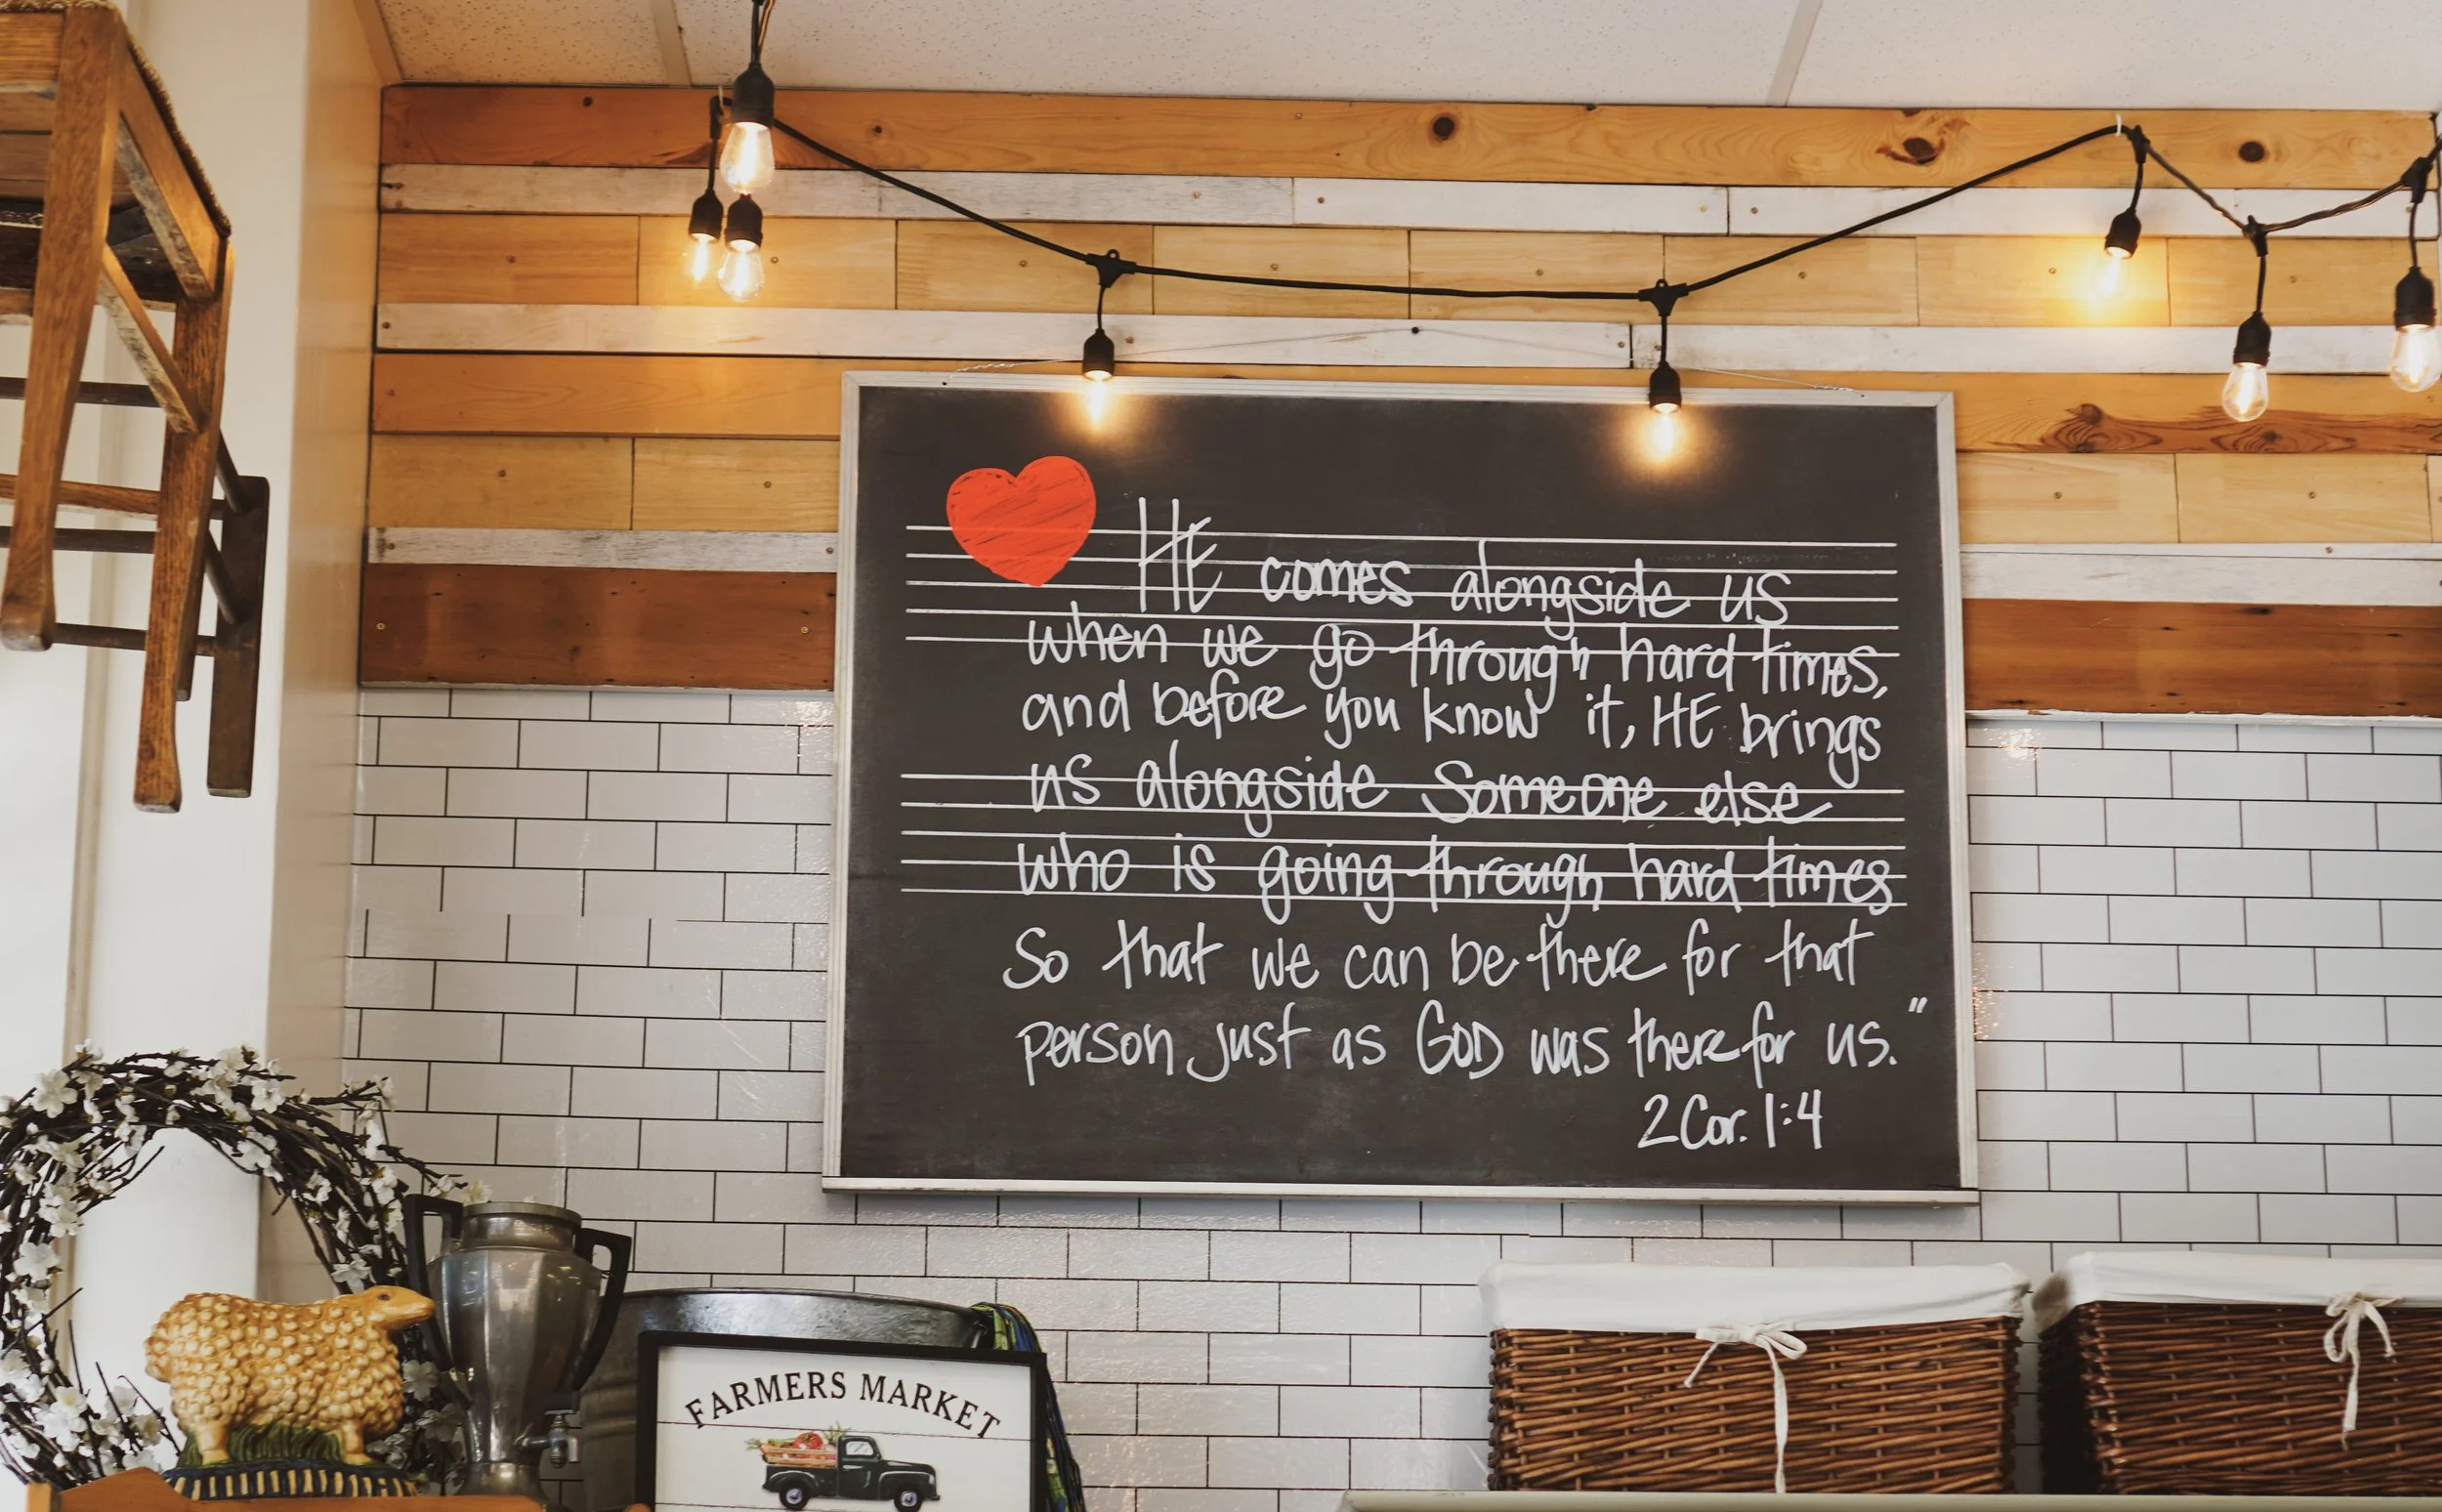 HE comes alongside us
when we go through hard times,
and before you know it, HE brings
us alongside Someone else
who is going through hard times
So that we can be there for that
person just as GOD was there for us."
2 Cor. 1:4
FARMERS MARKET